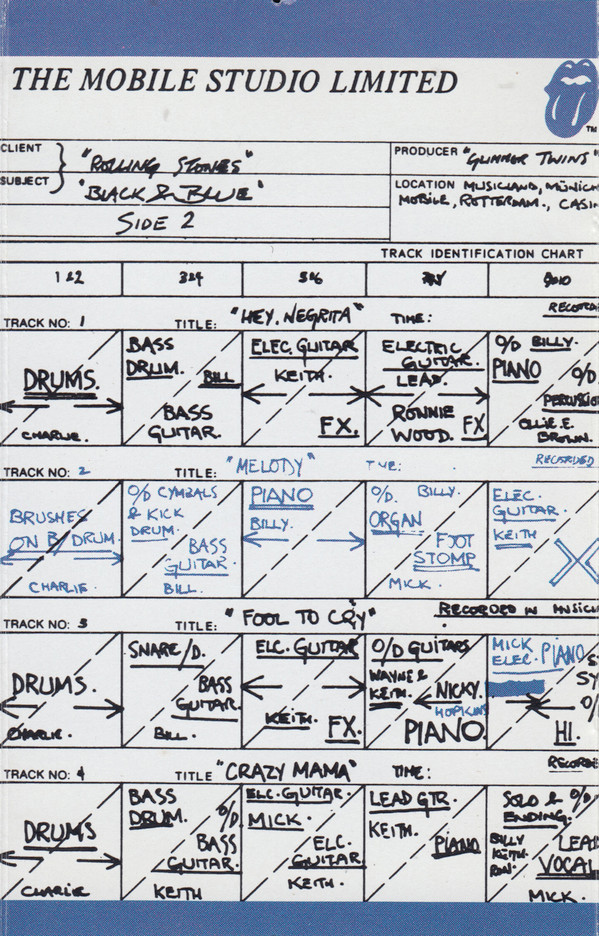 THE MOBILE STUDIO LIMITED
TM
CLIENT
"ROLLING STONES"
SUBJECT
"BLACK & BLUE"
SIDE 2
PRODUCER "GLIMMER TWINS"
LOCATION MUSICLAND, MÜNICH
MOBILE, ROTTERDAM., CASIN
TRACK IDENTIFICATION CHART
1 & 2
3 & 4
5 & 6
7 & 8
9 & 10
TRACK NO: 1
TITLE: "HEY. NEGRITA"
TIME:
RECORDE
DRUMS.
CHARLIE.
BASS
DRUM.
BILL
BASS
GUITAR.
ELEC. GUITAR
KEITH.
FX.
ELECTRIC
GUITAR.
LEAD.
RONNIE
WOOD. FX
O/D BILLY.
PIANO
O/D
PERCUSSIO
OLLIE. E.
BROWN.
TRACK NO: 2
TITLE: "MELODY"
RECORDED
BRUSHES
ON B/DRUM.
CHARLIE.
O/D CYMBALS
& KICK
DRUM.
BASS
GUITAR.
BILL.
PIANO
BILLY.
O/D. BILLY.
ORGAN
FOOT
STOMP
MICK.
ELEC.
GUITAR.
KEITH
TRACK NO: 3
TITLE: "FOOL TO CRY"
RECORDED IN MUSICL
DRUMS.
CHARLIE.
SNARE/D.
BASS
GUITAR.
BILL.
ELC. GUITAR
KEITH.
FX.
O/D GUITARS
WAYNE &
KEITH.
NICKY.
HOPKINS
PIANO.
MICK
ELEC. PIANO
S
SY
O/
HI.
TRACK NO: 4
TITLE "CRAZY MAMA"
TIME:
RECORDE
DRUMS
CHARLIE
BASS
DRUM.
O/D.
BASS
GUITAR.
KEITH
ELC. GUITAR.
MICK.
ELC.
GUITAR
KEITH.
LEAD GTR.
KEITH.
PIANO
SOLO & O/D
ENDING.
BILLY
KEITH.
RON.
LEAD
VOCAL
MICK.